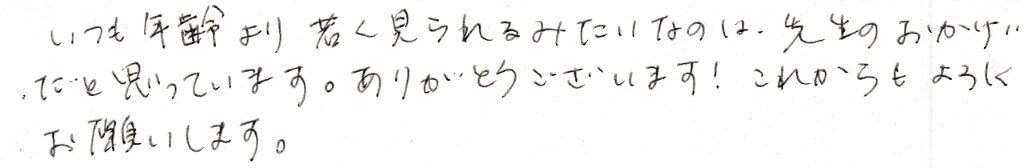 いつも年齢より若く見られるみたいなのは、先生のおかげ
だと思っています。ありがとうございます！これからもよろしく
お願いします。